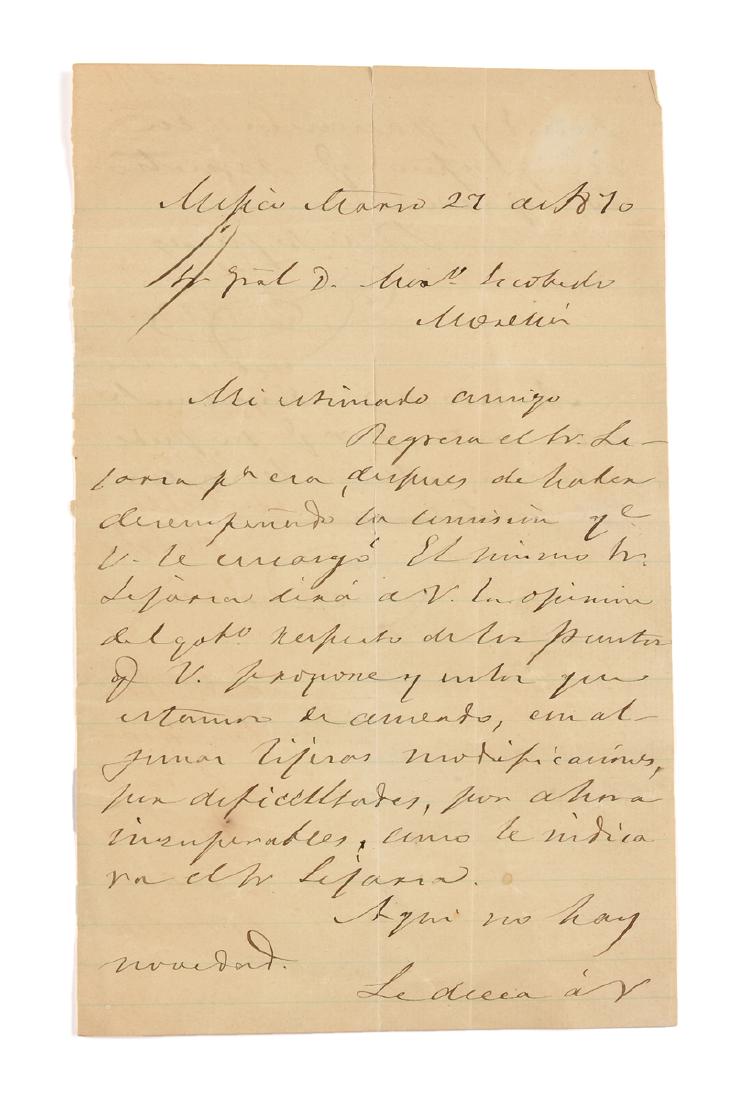 Mexico Marzo 27 de 1870
Sr Gral D. Mar.º Escobedo
Morelia
Mi estimado amigo
Regresa el Sr. Le-
jarza pª esa, despues de haber
desempeñado la comisión qe
V. le encargó El mismo Sr.
Lejarza dirá a V. la opinion
del gobº respecto de los puntos
q V. propone y en los que
estamos de acuerdo, con al-
gunas lijeras modificaciónes,
por dificultades, por ahora
insuperables, como le indica
ra el Sr Lejarza.
Aqui no hay
novedad.
Le desea á V